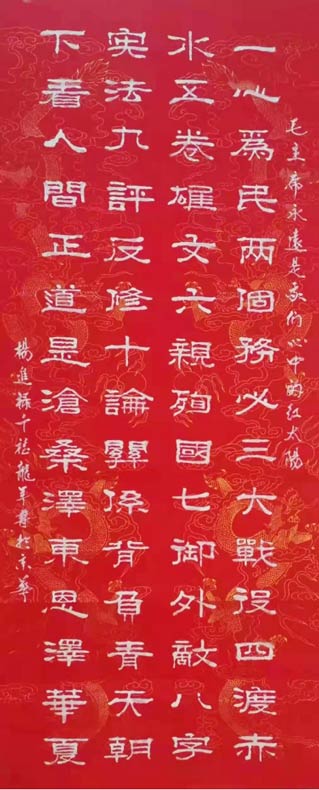 毛主席永遠是我们心中的红太陽
一心爲民两個務必三大戰役四渡赤
水五卷雄文六親殉國七御外敵八字
宪法九評反修十論關係背負青天朝
下看人間正道是滄桑澤東恩澤華夏
楊進千禧龍年書於京華